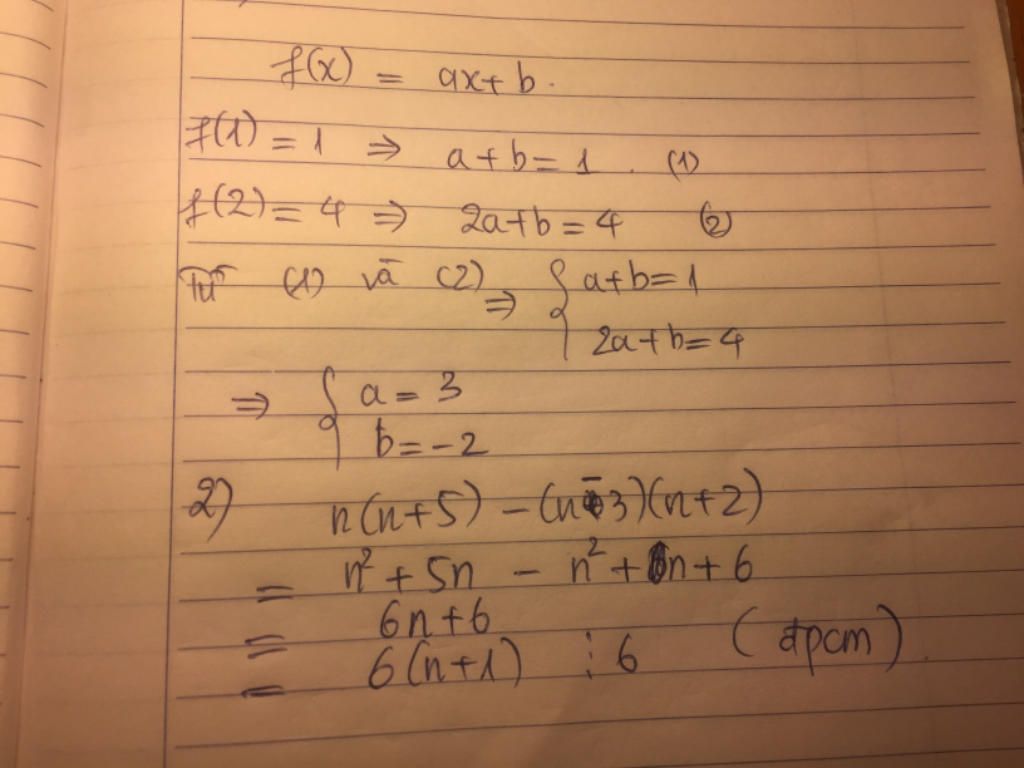 f(x) = ax+b.
f(1) = 1 ⇒ a+b=1. (1)
f(2) = 4 ⇒ 2a+b=4 (2)
Từ (1) và (2) ⇒ { a+b=1
2a+b=4
⇒ { a = 3
b=-2
2) n(n+5) - (n-3)(n+2)
= n² + 5n - n² + n + 6
= 6n+6
= 6(n+1) ⋮ 6 (đpcm).